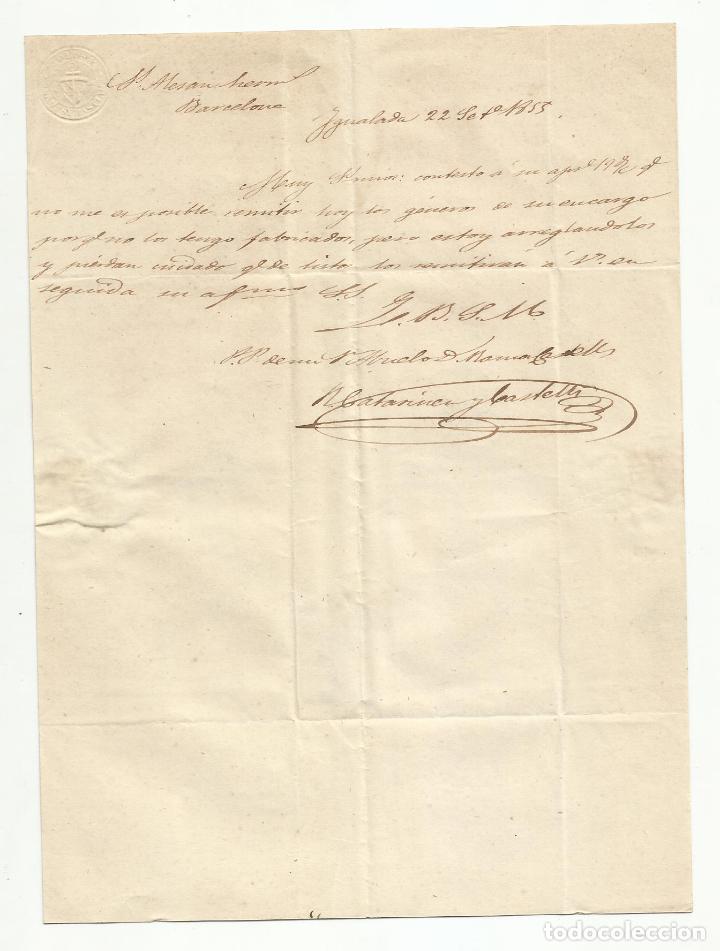 Sr. Alesan herm
Barcelona
Igualada 22 Set e 1855.
Muy Srmios: contesto á su apda 19 q e
no me es posible remitir hoy los géneros de su encargo
porq e no los tengo fabricados, pero estoy arreglandolos
y pierdan cuidado q e de listo los remitiran á V. en
seguida su afmo S.S.
Q.B.S.M
P.P. de mi Sr Abuelo D. Ramon Castells
R Catarineu y Castells
todocoleccion